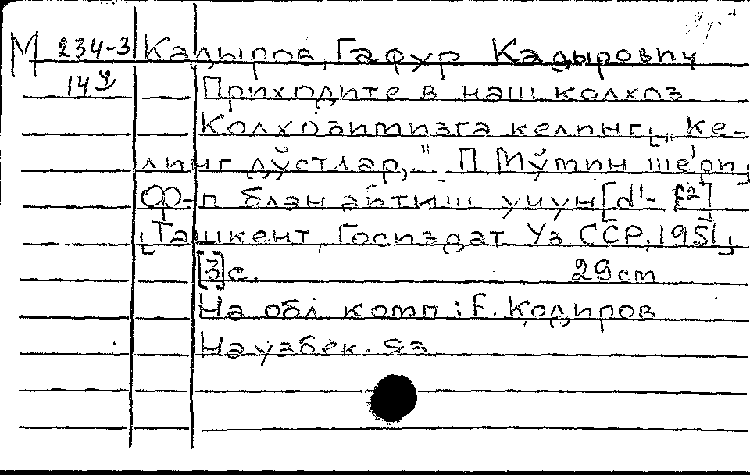 М 234-3 Кадыров, Гафур Кадырович
14
Приходите в наш колхоз
Колхозимизга келинг[„Ке-
линг дўстлар,..."] П Мўмин ше'ри,
Ф-п блан айтиш учун [d'- f²]
[Ташкент, Госиздат Уз ССР, 1951]
[3] с. 29 cm
На обл. комп: Ғ. Қодиров
На узбек. яз.